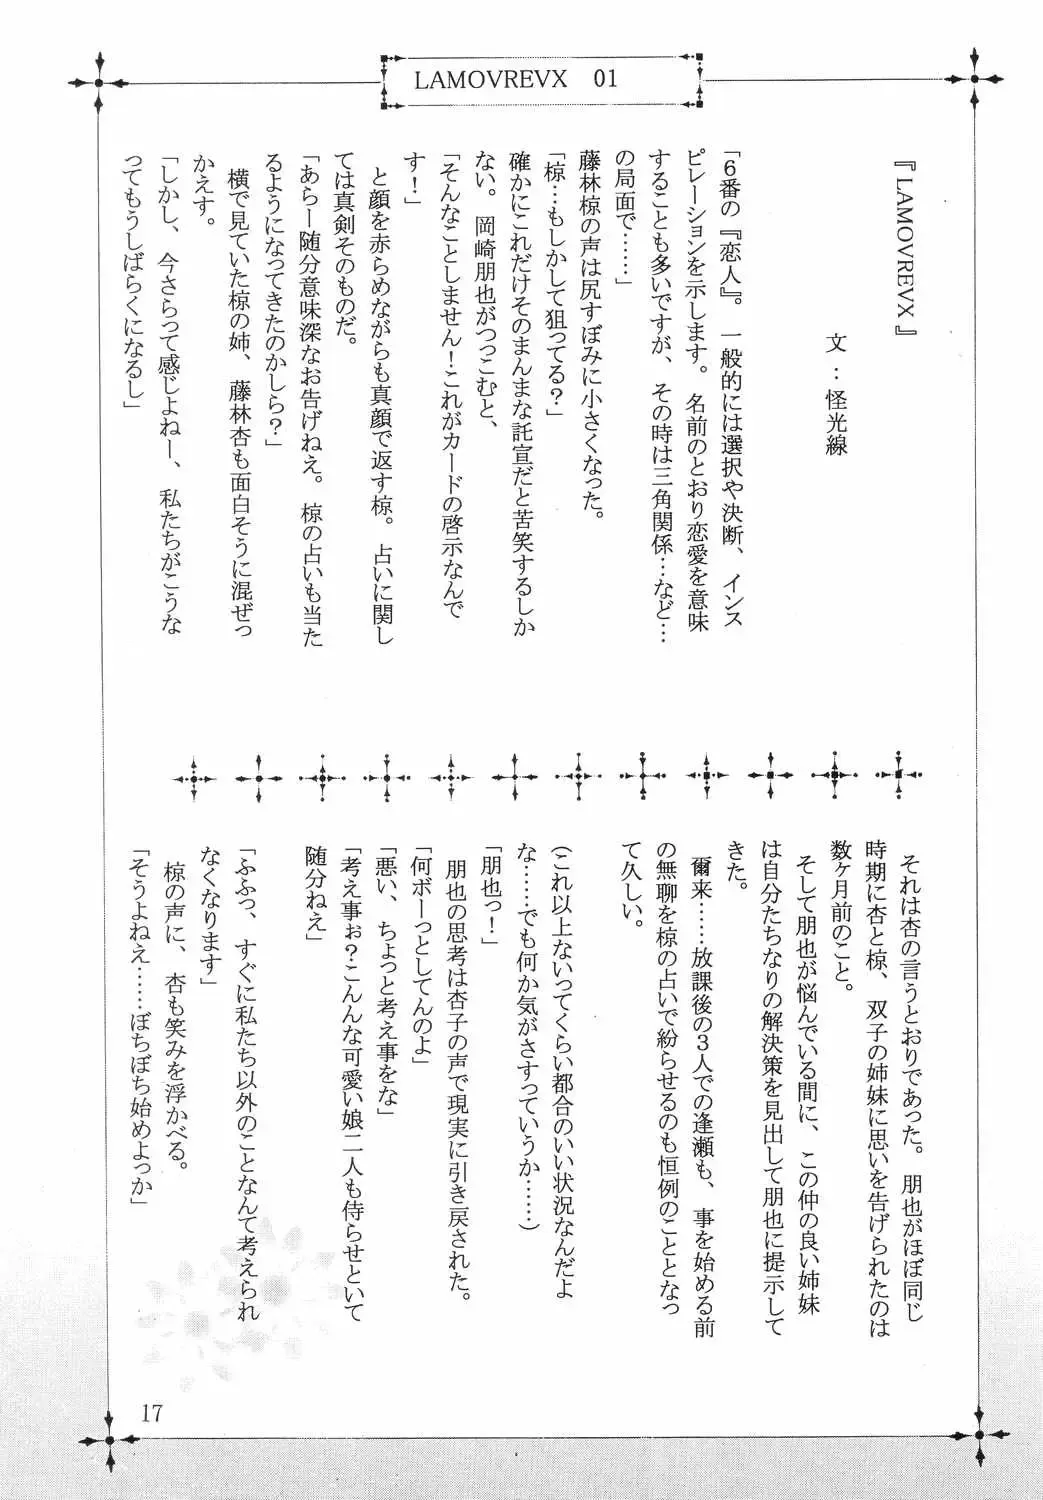 LAMOVREVX 01
『LAMOVREVX』
文：怪光線
「６番の『恋人』。一般的には選択や決断、インス
ピレーションを示します。名前のとおり恋愛を意味
することも多いですが、その時は三角関係…など…
の局面で……」
藤林椋の声は尻すぼみに小さくなった。
「椋…もしかして狙ってる？」
確かにこれだけそのまんまな託宣だと苦笑するしか
ない。岡崎朋也がつっこむと、
「そんなことしません！これがカードの啓示なんで
す！」
と顔を赤らめながらも真顔で返す椋。占いに関し
ては真剣そのものだ。
「あらー随分意味深なお告げねえ。椋の占いも当た
るようになってきたのかしら？」
横で見ていた椋の姉、藤林杏も面白そうに混ぜっ
かえす。
「しかし、今さらって感じよねー、私たちがこうな
ってもうしばらくになるし」
それは杏の言うとおりであった。朋也がほぼ同じ
時期に杏と椋、双子の姉妹に思いを告げられたのは
数ヶ月前のこと。
そして朋也が悩んでいる間に、この仲の良い姉妹
は自分たちなりの解決策を見出して朋也に提示して
きた。
爾来……放課後の３人での逢瀬も、事を始める前
の無聊を椋の占いで紛らせるのも恒例のこととなっ
て久しい。
（これ以上ないってくらい都合のいい状況なんだよ
な……でも何か気がさすっていうか……）
「朋也っ！」
朋也の思考は杏子の声で現実に引き戻された。
「何ボーっとしてんのよ」
「悪い、ちょっと考え事をな」
「考え事ぉ？こんんな可愛い娘二人も侍らせといて
随分ねえ」
「ふふっ、すぐに私たち以外のことなんて考えられ
なくなります」
椋の声に、杏も笑みを浮かべる。
「そうよねえ……ぼちぼち始めよっか」
17